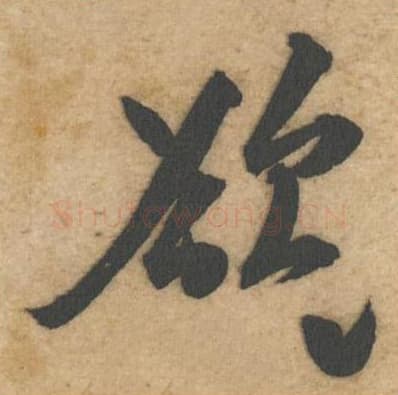 欲
Shufawang.CN